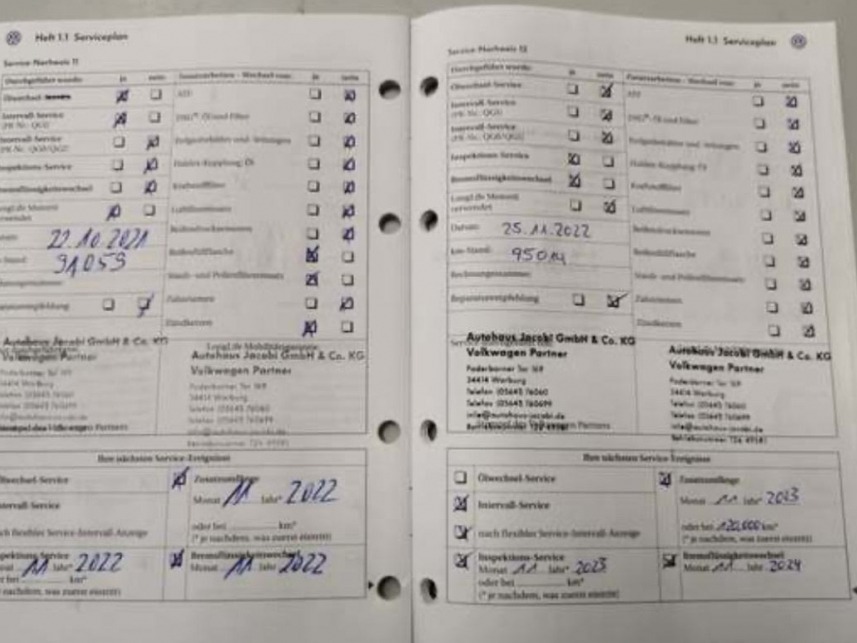 Heft 1.1 Serviceplan
Service-Nachweis 11
Durchgeführt wurde: ja nein Zusatzarbeiten - Wechsel von: ja nein
Ölwechsel-Service ATF
Intervall-Service
(PR-Nr.: QG1) DSG®-Öl und Filter
Intervall-Service
(PR-Nr.: QG0/QG2)
Inspektions-Service Haldex-Kupplung: Öl
Bremsflüssigkeitswechsel Kraftstofffilter
LongLife Motoröl
verwendet Luftfiltereinsatz
22.10.2021 Reifendichtmittel
Stand: 91059 Reifenfüllflasche
Staub- und Pollenfiltereinsatz
Zahnriemen
Zündkerzen
Autohaus Jacobi GmbH & Co. KG
Volkswagen Partner
Paderborner Tor 169
34414 Warburg
Telefon (05641) 76060
Telefax (05641) 760699
info@autohaus-jacobi.de
Autohaus Jacobi GmbH & Co. KG
Volkswagen Partner
Paderborner Tor 169
34414 Warburg
Telefon (05641) 76060
Telefax (05641) 760699
info@autohaus-jacobi.de
Ihre nächsten Service-Ereignisse
Ölwechsel-Service Zusatzumfänge
Monat 11 Jahr* 2022
Intervall-Service
nach flexibler Service-Intervall-Anzeige oder bei km*
(* je nachdem, was zuerst eintritt)
Inspektions-Service Bremsflüssigkeitswechsel
11 Jahr* 2022 Monat 11 Jahr 2022
oder bei km*
nachdem, was zuerst eintritt)
Heft 1.1 Serviceplan
Service-Nachweis 12
Durchgeführt wurde: ja nein Zusatzarbeiten - Wechsel von: ja nein
Ölwechsel-Service ATF
Intervall-Service
(PR-Nr.: QG1) DSG®-Öl und Filter
Intervall-Service
(PR-Nr.: QG0/QG2)
Inspektions-Service Haldex-Kupplung: Öl
Bremsflüssigkeitswechsel Kraftstofffilter
LongLife Motoröl
verwendet Luftfiltereinsatz
Datum: 25.11.2022 Reifendichtmittel
km-Stand: 95014 Reifenfüllflasche
Rechnungsnummer: Staub- und Pollenfiltereinsatz
Reparaturempfehlung Zahnriemen
Zündkerzen
Autohaus Jacobi GmbH & Co. KG
Volkswagen Partner
Paderborner Tor 169
34414 Warburg
Telefon (05641) 76060
Telefax (05641) 760699
info@autohaus-jacobi.de
Autohaus Jacobi GmbH & Co. KG
Volkswagen Partner
Paderborner Tor 169
34414 Warburg
Telefon (05641) 76060
Telefax (05641) 760699
info@autohaus-jacobi.de
Ihre nächsten Service-Ereignisse
Ölwechsel-Service Zusatzumfänge
Intervall-Service Monat 11 Jahr* 2023
nach flexibler Service-Intervall-Anzeige oder bei 120.000 km*
(* je nachdem, was zuerst eintritt)
Inspektions-Service Bremsflüssigkeitswechsel
Monat 11 Jahr* 2023 Monat 11 Jahr 2024
oder bei km*
(* je nachdem, was zuerst eintritt)